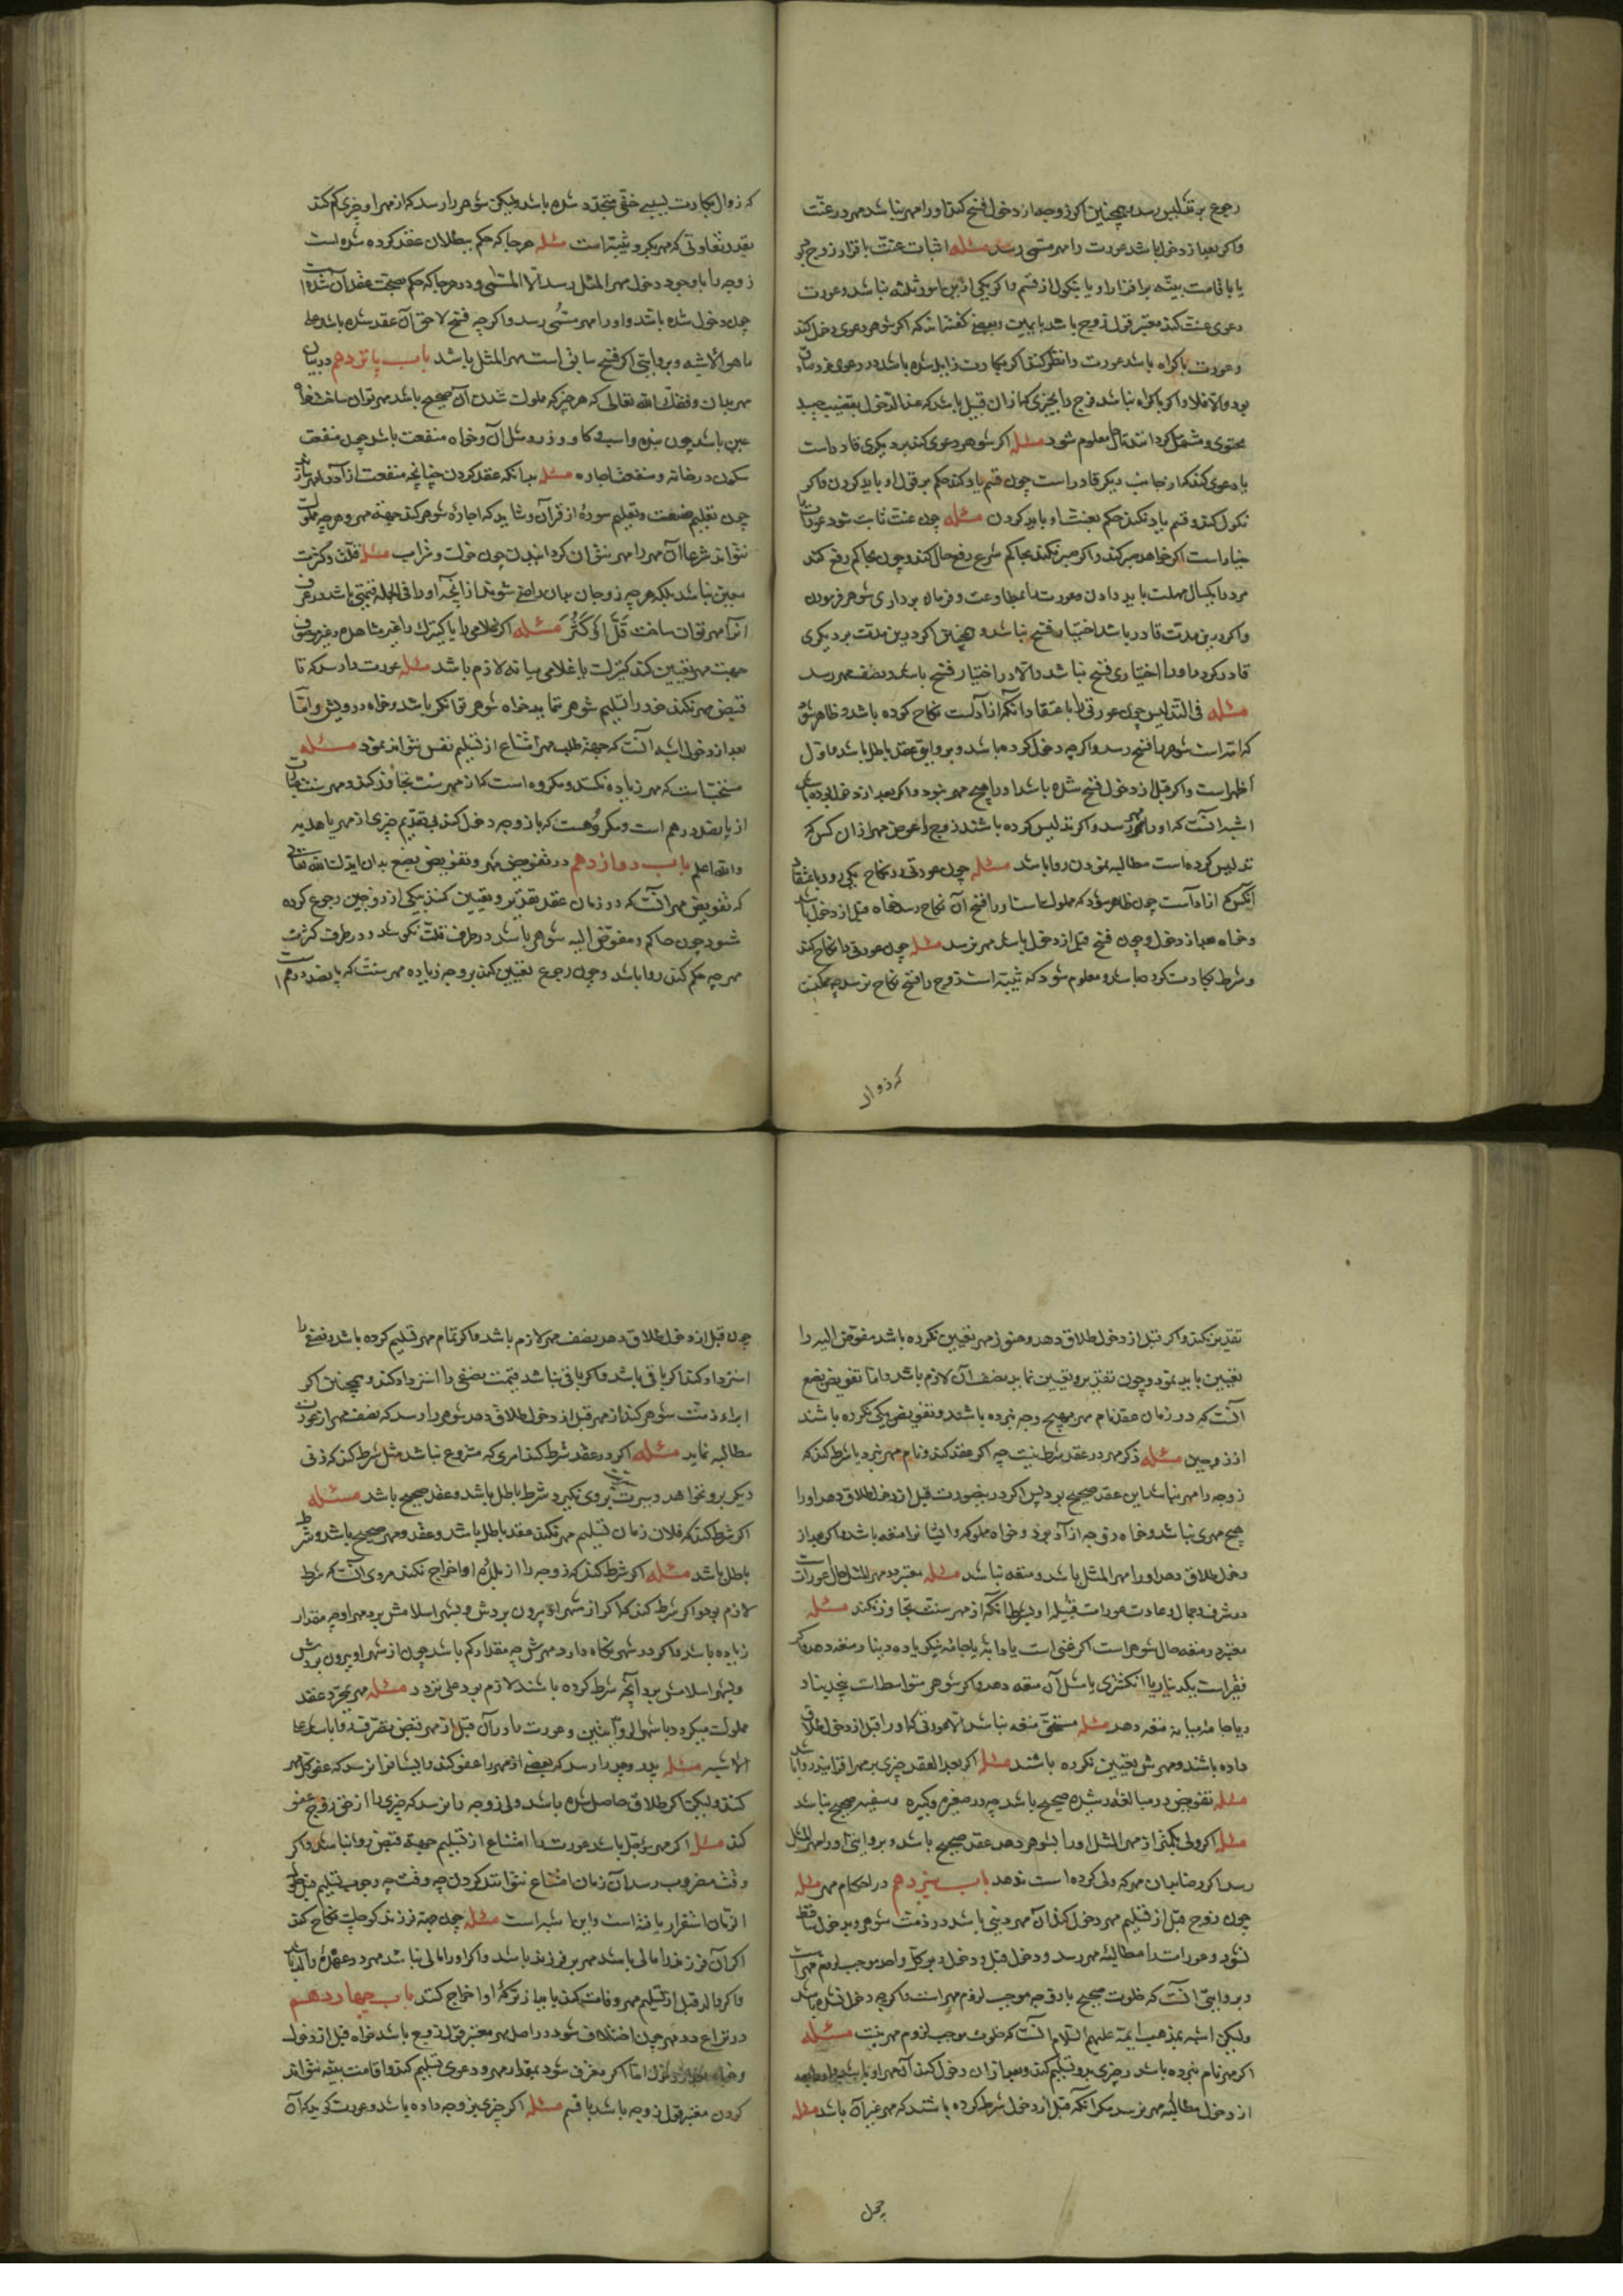 رجوع بر مدلس رسد همچنین اگر زوجه از دخول فسخ کند او را مهر نباشد مهر در عنّت
واکر بعد از دخول باشد عورت را مهر مسمّی رسد مسئله اثبات عنّت باقرار زوج بود
یا باقامت بیّنه بر اقرار او یا بنکول از قسم واکر یکی ازین امور ثلثه نباشد و عورت
دعوی عنت کند معتبر قول زوج باشد با یمین و بعضی کفته‌اند که اکر شوهر دعوی دخول کند
و عورت باکره باشد عورت را نظر کنند اکر بکارت زایل شده باشد در دعوی خود صادق
بود والا فلا واکر باکره نباشد فرج را بچیزی که از آن قبیل باشد که عند الدخول بقضیب چسبد
محشوی و مشتمل کردانند تا حال معلوم شود مسئله اکر شوهر دعوی کند که بر دیکری قادر است
یا دعوی کند که از جانب دیکر قادر است چون قسم یاد کند حکم بر قول او باید کردن واکر
نکول کند و قسم یاد نکند حکم بعنت او باید کردن مسئله چون عنت ثابت شود عورت را
خیار است اکر خواهد صبر کند واکر صبر نکند بحاکم شرع رفع حال کند و چون بحاکم رفع کند
مرد را یکسال مهلت باید دادن و عورت را بمطاوعت و فرمان برداری شوهر فرمودن
واکر درین مدت قادر باشد اختیار فسخ نباشد و همچنین اکر درین مدت بر دیکری
قادر کردد او را اختیاری فسخ نباشد والا او را اختیار فسخ باشد و نصف مهر رسد
مسئله فی التدلیس چون عورتی را باعتقاد آنکه آزاد است نکاح کرده باشد و ظاهر شود
که امه است شوهر را فسخ رسد واکرچه دخول کرده باشد و بروایتی عقد باطل باشد و اول
اظهر است واکر قبل از دخول فسخ شده باشد او را هیچ مهر نبود واکر بعد از دخول بوده باشد
اشبه آنست که او را مهر رسد واکر تدلیس کرده باشند زوج را عوض مهر از آن کس که
تدلیس کرده است مطالبه نمودن روا باشد مسئله چون عورتی در نکاح یکی رود باعتقاد
آنکه آزاد است چون ظاهر شود که مملوک است او را فسخ آن نکاح رسد خواه قبل از دخول باشد
و خواه بعد از دخول و چون فسخ قبل از دخول باشد مهر نرسد مسئله چون عورتی را نکاح کند
و شرط بکارت کرده باشد و معلوم شود که ثیّبه است زوج را فسخ نکاح نرسد چه ممکنست
که زوال
که زوال بکارت بسببی خفی متجدّد شده باشد ولیکن شوهر را رسد که از مهر او چیزی کم کند
بقدر تفاوتی که مهر بکر و ثیّبه است مسئله هرجا که حکم ببطلان عقد کرده شده است
زوجه را با وجود دخول مهر المثل رسد لا المسمّی و در هرجا که حکم بصحت عقد آن شده است
چون دخول شده باشد او را مهر مسمّی رسد واکرچه فسخ لاحق آن عقد شده باشد علی
ما هو الاشبه و بروایتی اکر فسخ سابق است مهر المثل باشد باب یانزدهم در بیان
مهر بدان وفقک الله تعالی که هر چیز که مملوک شدن آن صحیح باشد مهر توان ساخت خواه
عین باشد چون بنده و اسب و کاو و زر و مثل آن و خواه منفعت باشد چون منفعت
سکون در خانه و منفعت اجاره مسئله بدانکه عقد کردن چنانچه منفعت از آزاد مهر باشد
چون تعلیم صنعت و تعلیم سوره از قرآن و شاید که اجاره شوهر کند جهة مهر و هرچه مملوک
نتواند شرعا آن مهر را مهر نتوان کردانیدن چون خوک و شراب مسئله قلّت و کثرت
معین نباشد بلکه هرچه زوجان بدان راضی شوند از آنچه او را فی الجمله قیمتی باشد در عرف
آنرا مهر توان ساخت قَلَّ اَوْ کَثُرَ مسئله اکر غلامی را یا کنیزک را غیر مشاهده و غیر موصوف
جهت مهر تعیین کند کنیزک یا غلامی میانه لازم باشد مسئله عورت را رسد که تا
قبض مهر نکند خود را تسلیم شوهر ننماید خواه شوهر توانکر باشد و خواه درویش و امّا
بعد از دخول اشبه آنست که جهة طلب مهر امتناع از تسلیم نفس نتواند نمود مسئله
مستحبّ است که مهر زیاده نکند و مکروه است که از مهر سنّت تجاوز کند و مهر سنت عبارت
از پانصد درهم است و مکروهست که با زوجه دخول کند بی تقدیم چیزی از مهر یا هدیه
والله اعلم باب دوازدهم در تفویض مهر و تفویض بضع بدان ایدک الله تعالی
که تفویض مهر آنست که در زمان عقد تقدیر و تعیین کنند بیکی از زوجین رجوع کرده
شود چون حاکم و مفوّض الیه شوهر باشد در طرف قلّت نکوشد و در طرف کثرت
هرچه حکم کند روا باشد و چون رجوع تعیین کند بزوجه زیاده مهر سنّت که پانصد درهم است
تقدیر نکند واکر قبل از دخول طلاق دهد و هنوز مهر تعیین نکرده باشد مفوّض الیه را
تعیین باید نمود و چون تقدیر و تعیین نماید نصف آن لازم باشد و امّا تفویض بضع
آنست که در زمان عقد نام مهر بهیچ وجه نبرده باشند و تفویض بیکی نکرده باشند
از زوجین مسئله ذکر مهر در عقد شرط نیست چه اکر عقد کند و نام مهر نبرد یا شرط کند که
زوجه را مهر نباشد این عقد صحیح بود پس اکر درین صورت قبل از دخول طلاق دهد او را
هیچ مهری نباشد و خواه زوجه آزاد بود و خواه مملوکه و ایشانرا متعه باشد واکر بعد از
دخول طلاق دهد او را مهر المثل باشد و متعه نباشد مسئله معتبر در مهر المثل حال عورات
در شرف و جمال و عادت عورات قبیله او بشرط آنکه از مهر سنّت تجاوز نکند مسئله
معتبر در متعه حال شوهر است اکر غنی است یا دابّه یا جامه نیکو یا ده دینار متعه دهد واکر
فقیر است یکدینار یا انکشتری یا مثل آن متعه دهد واکر شوهر متوسط است پنج دینار
یا جامه میانه متعه دهد مسئله مستحقّ متعه نباشد الا عورتی که او را قبل از دخول طلاق
داده باشند و مهرش تعیین نکرده باشند مسئله اکر بعد العقد چیزی بر مهر افزایند روا باشد
مسئله تفویض در مبالغه رشیده صحیح باشد چه در صغیره و کبیره و سفیه صحیح نباشد
مسئله اکر ولی بکمتر از مهر المثل او را بشوهر دهد عقد صحیح باشد و بروایتی او را مهر المثل
رسد اکر رضا بدان مهر که ولی کرده است ندهد باب سیزدهم در احکام مهر مسئله
چون زوج قبل از تسلیم مهر دخول کند آن مهر دینی باشد در ذمّت شوهر و بدخول ساقط
نشود و عورات را مطالبهٔ مهر رسد و دخول قبل و دخول دبر کل واحد موجب لزوم مهر است
و بروایتی آنست که خلوت صحیح با زوجه موجب لزوم مهر است واکرچه دخول نشده باشد
ولیکن اشبه بمذهب ایمّه علیهم السلام آنست که خلوت موجب لزوم مهر نیست مسئله
اکر مهر نام نبرده باشد و چیزی برو تسلیم کند و بعد از آن دخول کند آن مهر او باشد و او را بعد
از دخول مطالبهٔ مهر نرسد مکر آنکه قبل از دخول شرط کرده باشند که مهر غیر آن باشد مسئله
چون قبل از دخول طلاق دهد نصف مهر لازم باشد واکر تمام مهر تسلیم کرده باشد نصف را
استرداد کند اکر باقی باشد واکر باقی نباشد قیمت نصفی را استرداد کند و همچنین اکر
ابراء ذمّت شوهر کند از مهر قبل از دخول طلاق دهد شوهر را رسد که نصف مهر از عورت
مطالبه نماید مسئله اکر در عقد شرط کند امری که مشروع نباشد مثل شرط کند که زنی
دیکر برو نخواهد و سریّت بروی نکیرد شرط باطل باشد و عقد صحیح باشد مسئله
اکر شرط کند که فلان زمان تسلیم مهر نکند عقد باطل باشد و عقد و مهر صحیح باشد و شرط
باطل باشد مسئله اکر شرط کند که زوجه را از بلد او اخراج نکند مروی آنست که شرط
لازم بود واکر شرط کند که اکر از شهر او بیرون بردش و بشهر اسلامش برد مهر او چه مقدار
زیاده باشد واکر در شهر نکاه دارد مهرش چه مقدار کم باشد چون از شهر او بیرون بردش
و بشهر اسلامش برد آنچه شرط کرده باشند لازم بود علی تردد مسئله مهر بمجرّد عقد
مملوک میکردد باشهر الروایتین و عورت را در آن قبل از مهر قبض تصرّف روا باشد علی
الاشبه مسئله پدر و جد را رسد که بعضی از مهر را عفو کند و ایشانرا نرسد که عفو کل مهر
کند ولیکن اکر طلاق حاصل شده باشد ولی زوجه را نرسد که چیزی را از حق زوج عفو
کند مسئله اکر مهر مؤجّل باشد عورت را امتناع از تسلیم جهة قبض روا نباشد واکر
وقت مضروب رسد آن زمان امتناع نتواند کردن چه وقت چه وجوب تسلیم قبل از
الزمان استقرار یافته است و این اشبه است مسئله چون جهة فرزند کوچک نکاح کند
اکر آن فرزند را مالی باشد مهر بر فرزند باشد واکر او را مالی نباشد مهر در عهدهٔ والد باشد
واکر والد قبل از تسلیم مهر وفات کند باید از ترکهٔ او اخراج کنند باب چهاردهم
در نزاع در مهر چون اختلاف شود در اصل مهر معتبر قول زوج باشد خواه قبل از دخول
و خواه بعد از دخول امّا اکر معترف شود بمقدار مهر و دعوی تسلیم کند و اقامت بیّنه نتواند
کردن معتبر قول زوجه باشد با قسم مسئله اکر چیزی بزوجه داده باشد و عورت کوید که آن
چون